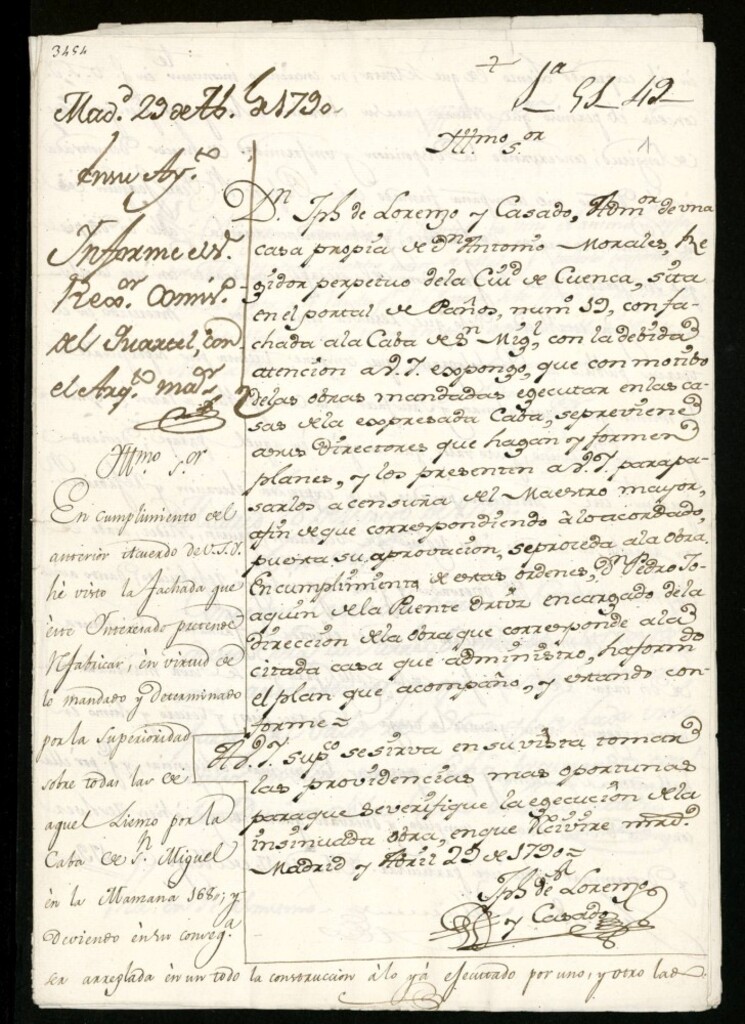 3454
1a 51 49
1
Mad.d 29 de Ab.l de 1790
en su Ay.to
Informe el S.r
Rex.or Comis.o
del Quartel, con
el Arq.to ma.r
Ill.mo s.or
D.n Jph de Lorenzo y Casado, Adm.or de vna
casa propia de D.n Antonio Morales, Re
gidor perpetuo dela Ciu.d de Cuenca, sita
en el portal de Paños, num.o 19, con fa-
chada ala Caba de S.n Mig.l, con la debida
atencion a V. I. expongo, que con motibo
delas obras mandadas egecutar en las ca-
sas de la expresada Caba, se previene
a sus Directores que hagan y formen
planes, y los presenten a V. I. para pa-
sarlos a censura del Maestro mayor,
afin de que correspondiendo a lo acordado,
puesta su aprovacion, se proceda a la obra.
En cumplimiento de estas ordenes, D.n Pedro Jo-
aquin de la Puente Ortiz encargado de la
direccion de la obra que corresponde a la
citada casa que administro, ha formdo
el plan que acompaño, y estando con-
forme=
A V. I. sup.co se sirva en su vista tomar
las providencias mas oportunas
para que se verifique la egecucion de la
insinuada obra, en que Recivire mrd.
Madrid y Abril 29 de 1790=
Jph de Lorenzo
y Casado
Ill.mo s.or
En cumplimiento del
anterior acuerdo de V.S.I.
hé visto la fachada que
èste Interesado pretende
Rfabricar, èn virtud de
lo mandado y determinado
por la Superioridad
sobre todas las de
aquel Liemo por la
Caba de S.n Miguel
èn la Manzana 168; y
deviendo èn su conseq.a
ser arreglada èn un todo la construccion àlo yá efecutado por uno, y otro lado